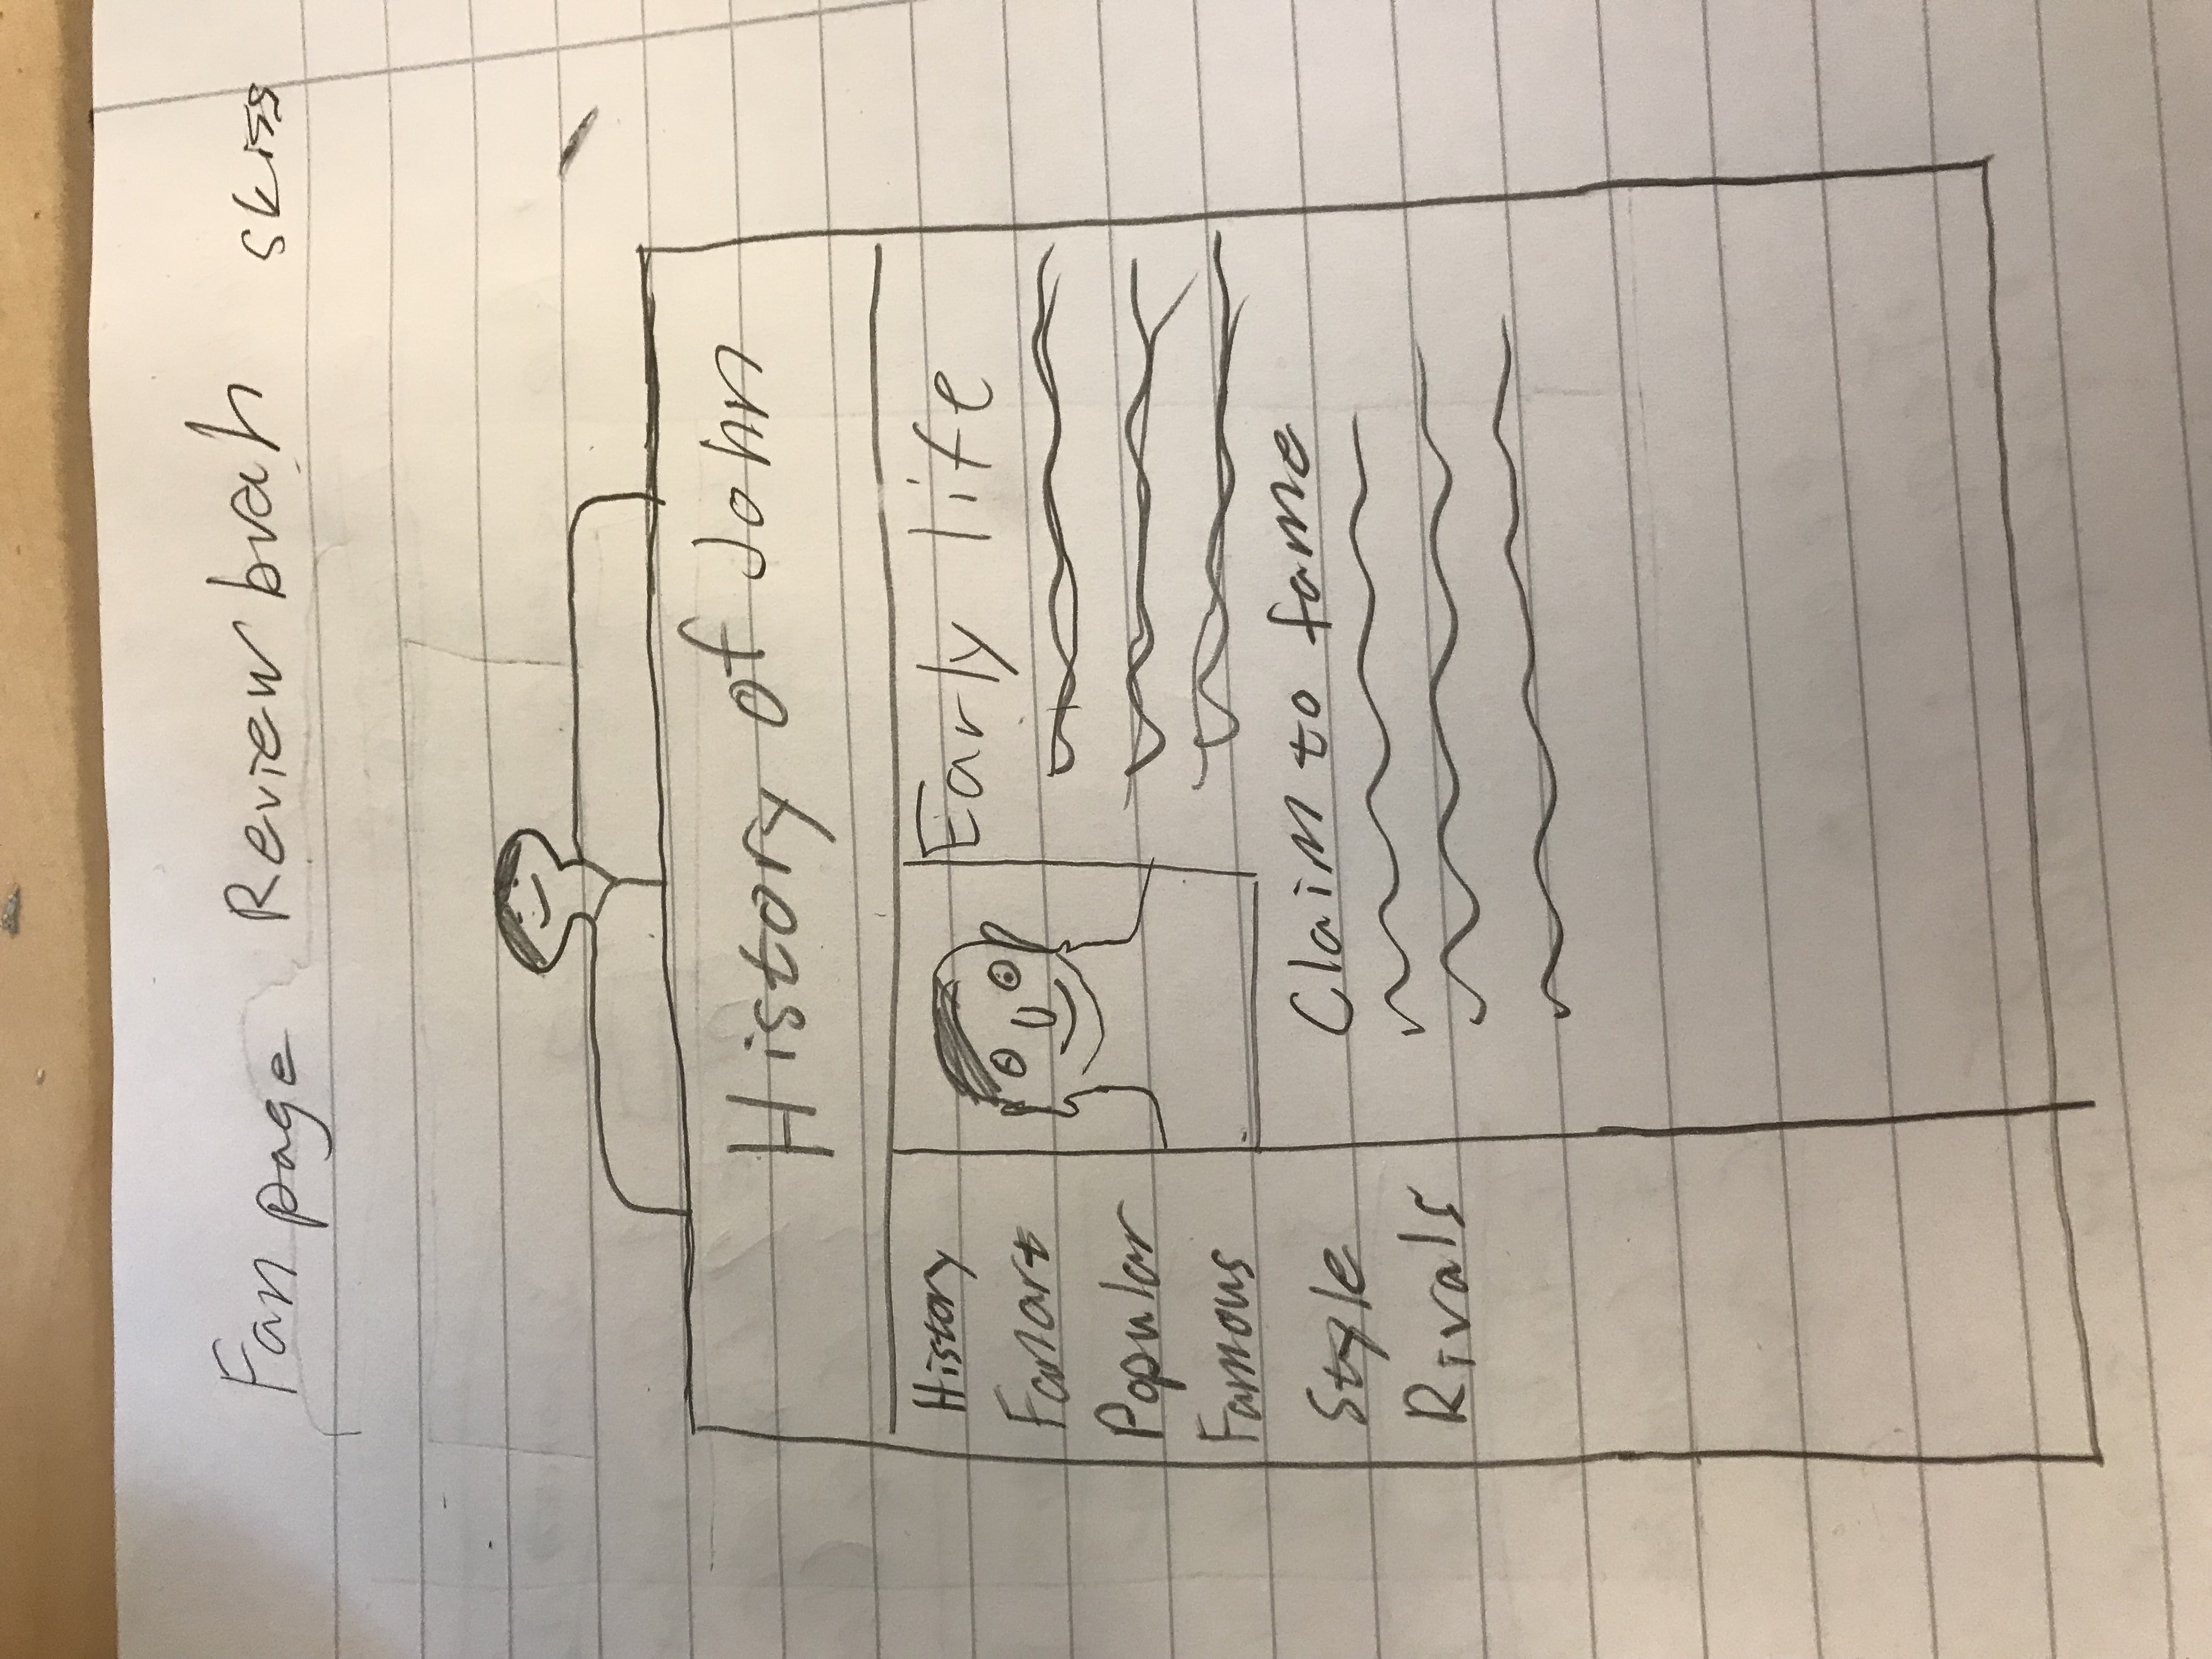 Fan page Reviewbrah skiss
History of John
History
Fanart
Popular
Famous
Style
Rivals
Early life
Claim to fame